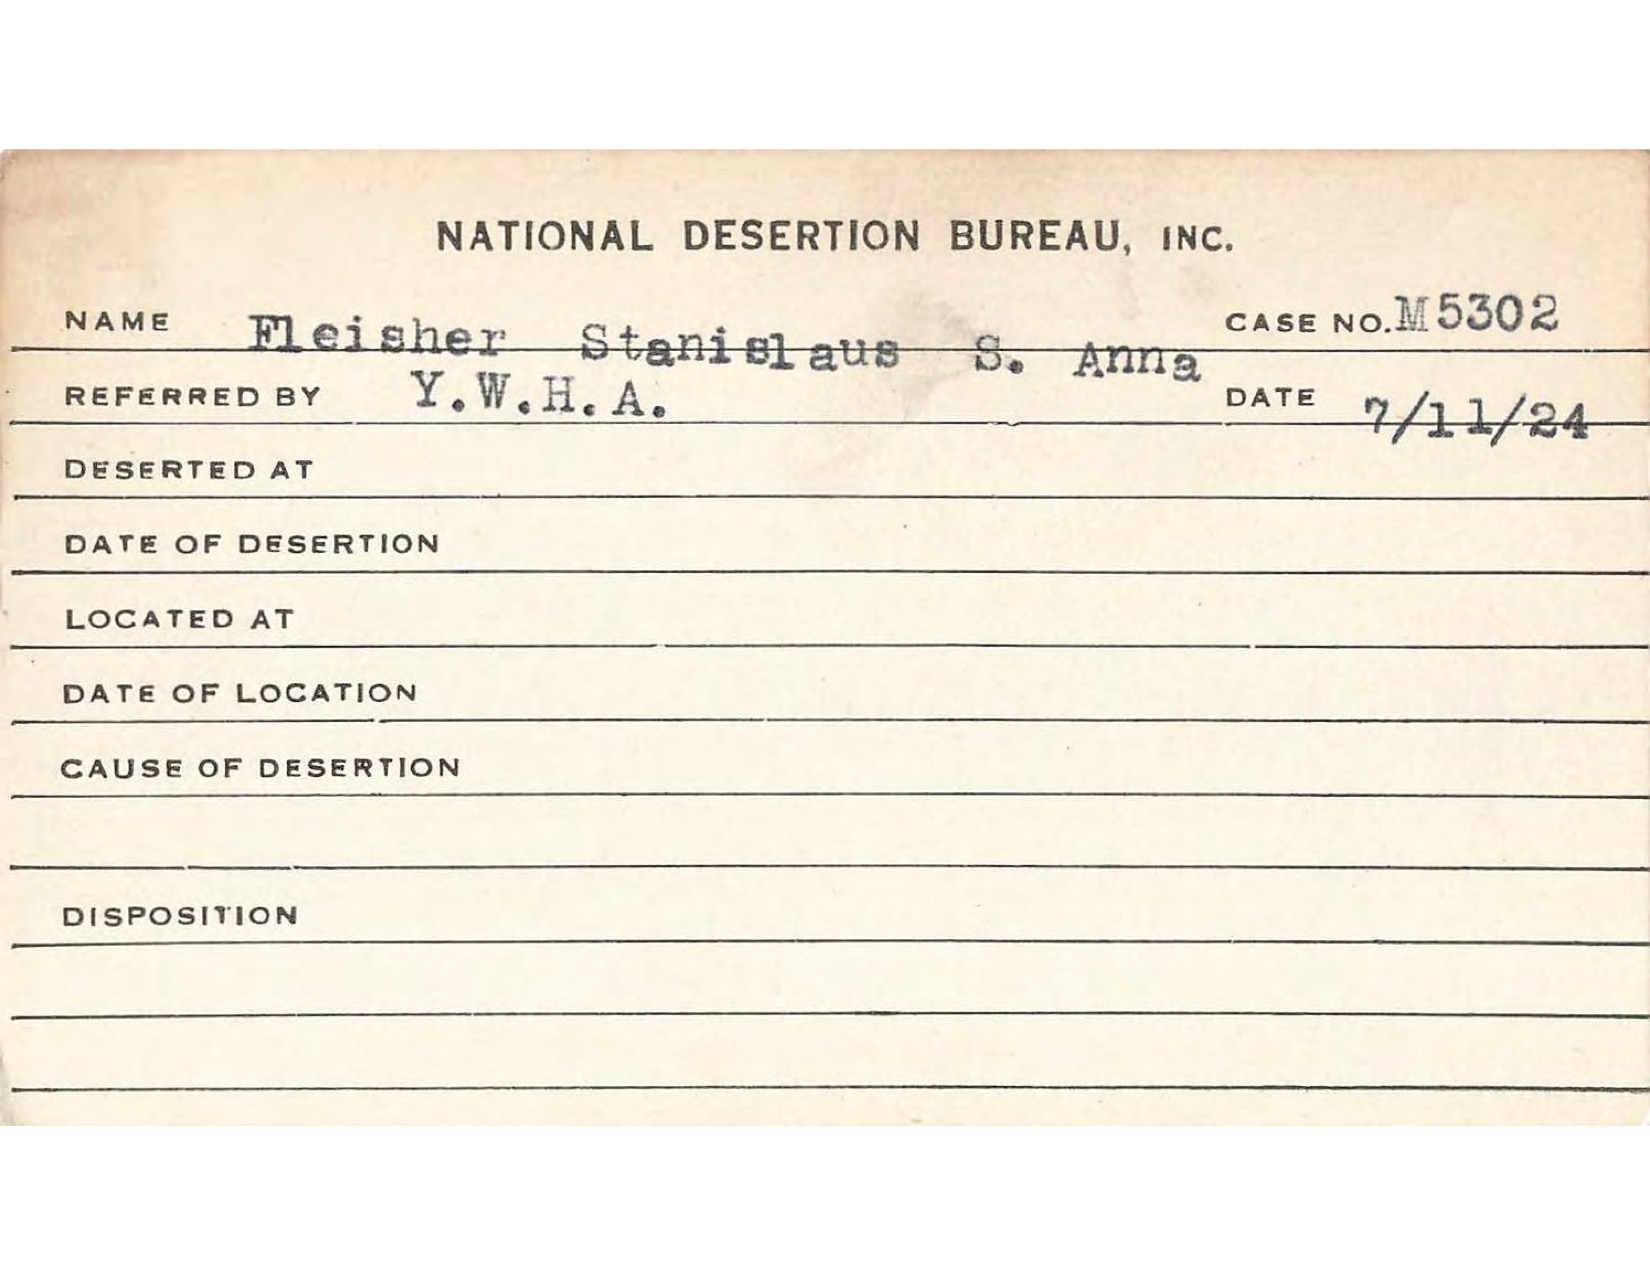 NATIONAL DESERTION BUREAU, INC.
NAME Fleisher Stanislaus S. Anna CASE NO. M5302
REFERRED BY Y.W.H.A. DATE 7/11/24
DESERTED AT
DATE OF DESERTION
LOCATED AT
DATE OF LOCATION
CAUSE OF DESERTION
DISPOSITION